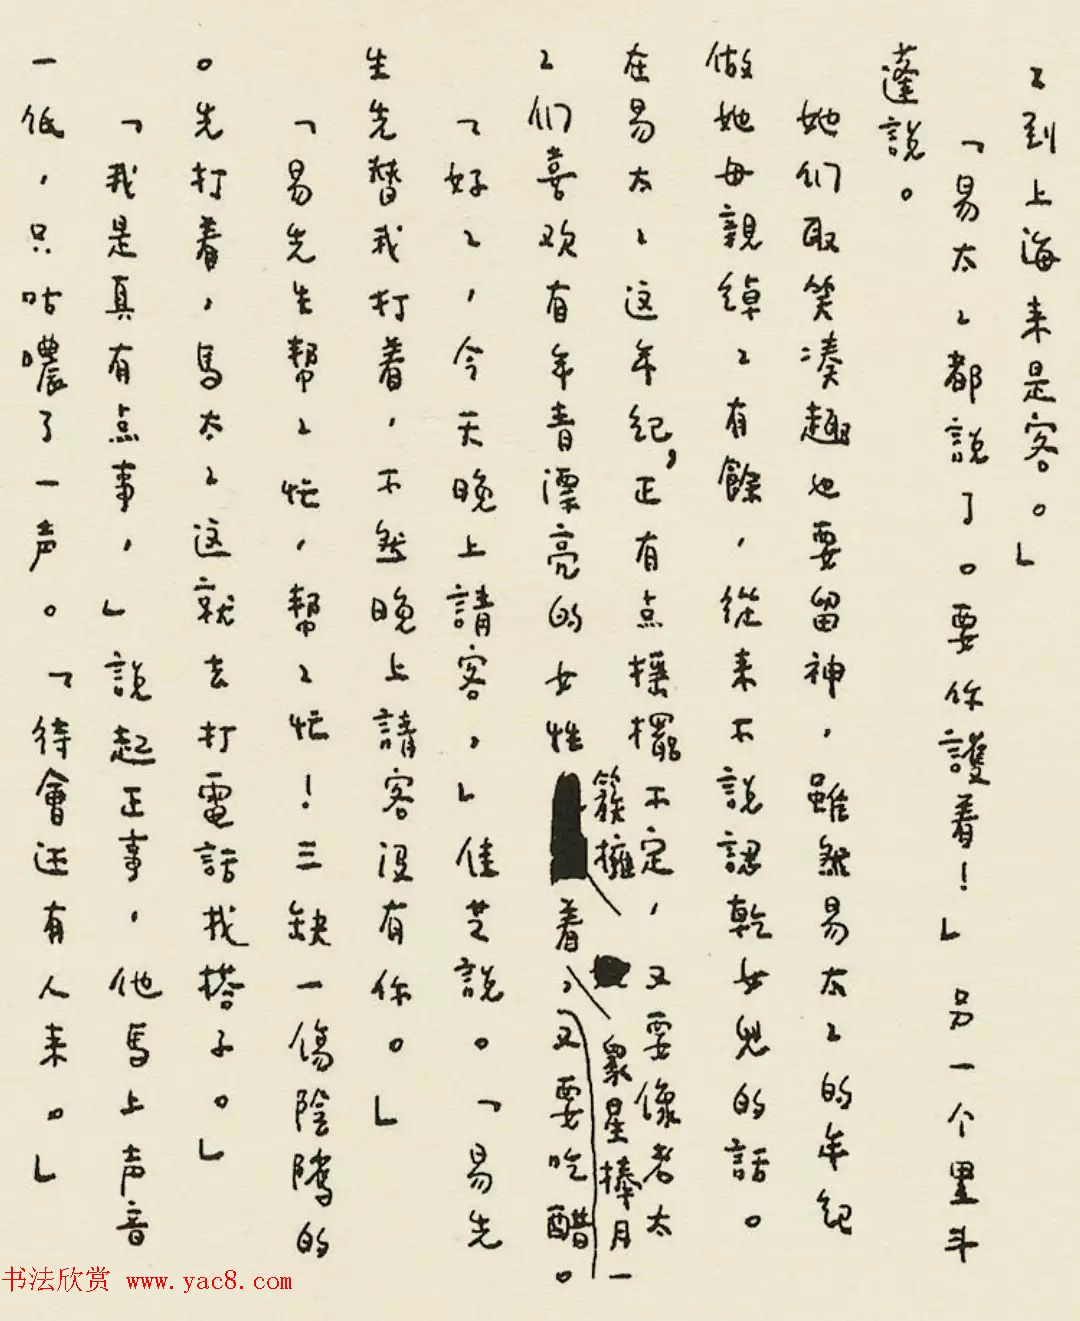 々到上海来是客。」
「易太々都説了。要你護着！」另一个黑斗
蓬説。
她们取笑凑趣也要留神，雖然易太々的年紀
做她母親綽々有餘，從来不説認乾女児的話。
在易太々这年紀，正有点摇擺不定，又要像老太
簇擁
衆星捧月一
々们喜欢有年青漂亮的女性着，又要吃醋。
「好々，今天晚上請客，」佳芝説。「易先
生先替我打着，不然晚上請客没有你。」
「易先生帮々忙，帮々忙！三缺一傷陰騭的
。先打着，馬太々这就去打電話找搭子。」
「我是真有点事，」説起正事，他馬上声音
一低，只咕噥了一声。「待會还有人来。」
书法欣赏 www.yac8.com